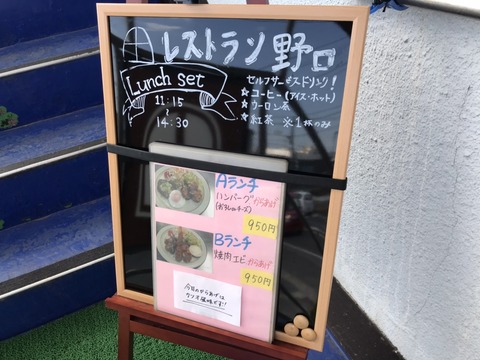 レストラン野口
Lunch set
11:15
～
14:30
セルフサービスドリンク!
★コーヒー(アイス・ホット)
★ウーロン茶
★紅茶 ※1杯のみ
Aランチ
ハンバーグ からあげ
(おろしorチーズ)
950円
Bランチ
焼肉 エビ からあげ
950円
今日のからあげは
クリオ風味です!